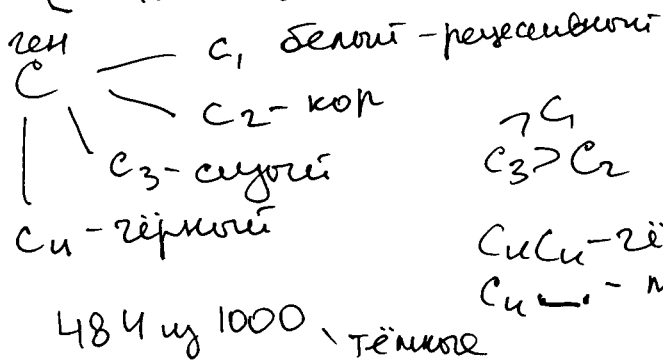 ген
C
C₁ белый - рецессивный
C₂ - кор
C₃ - серый
C₄ - чёрный
> C₁
C₃ > C₂
C₄C₄ - чё
C₄ —. -
484 из 1000 \ тёмные